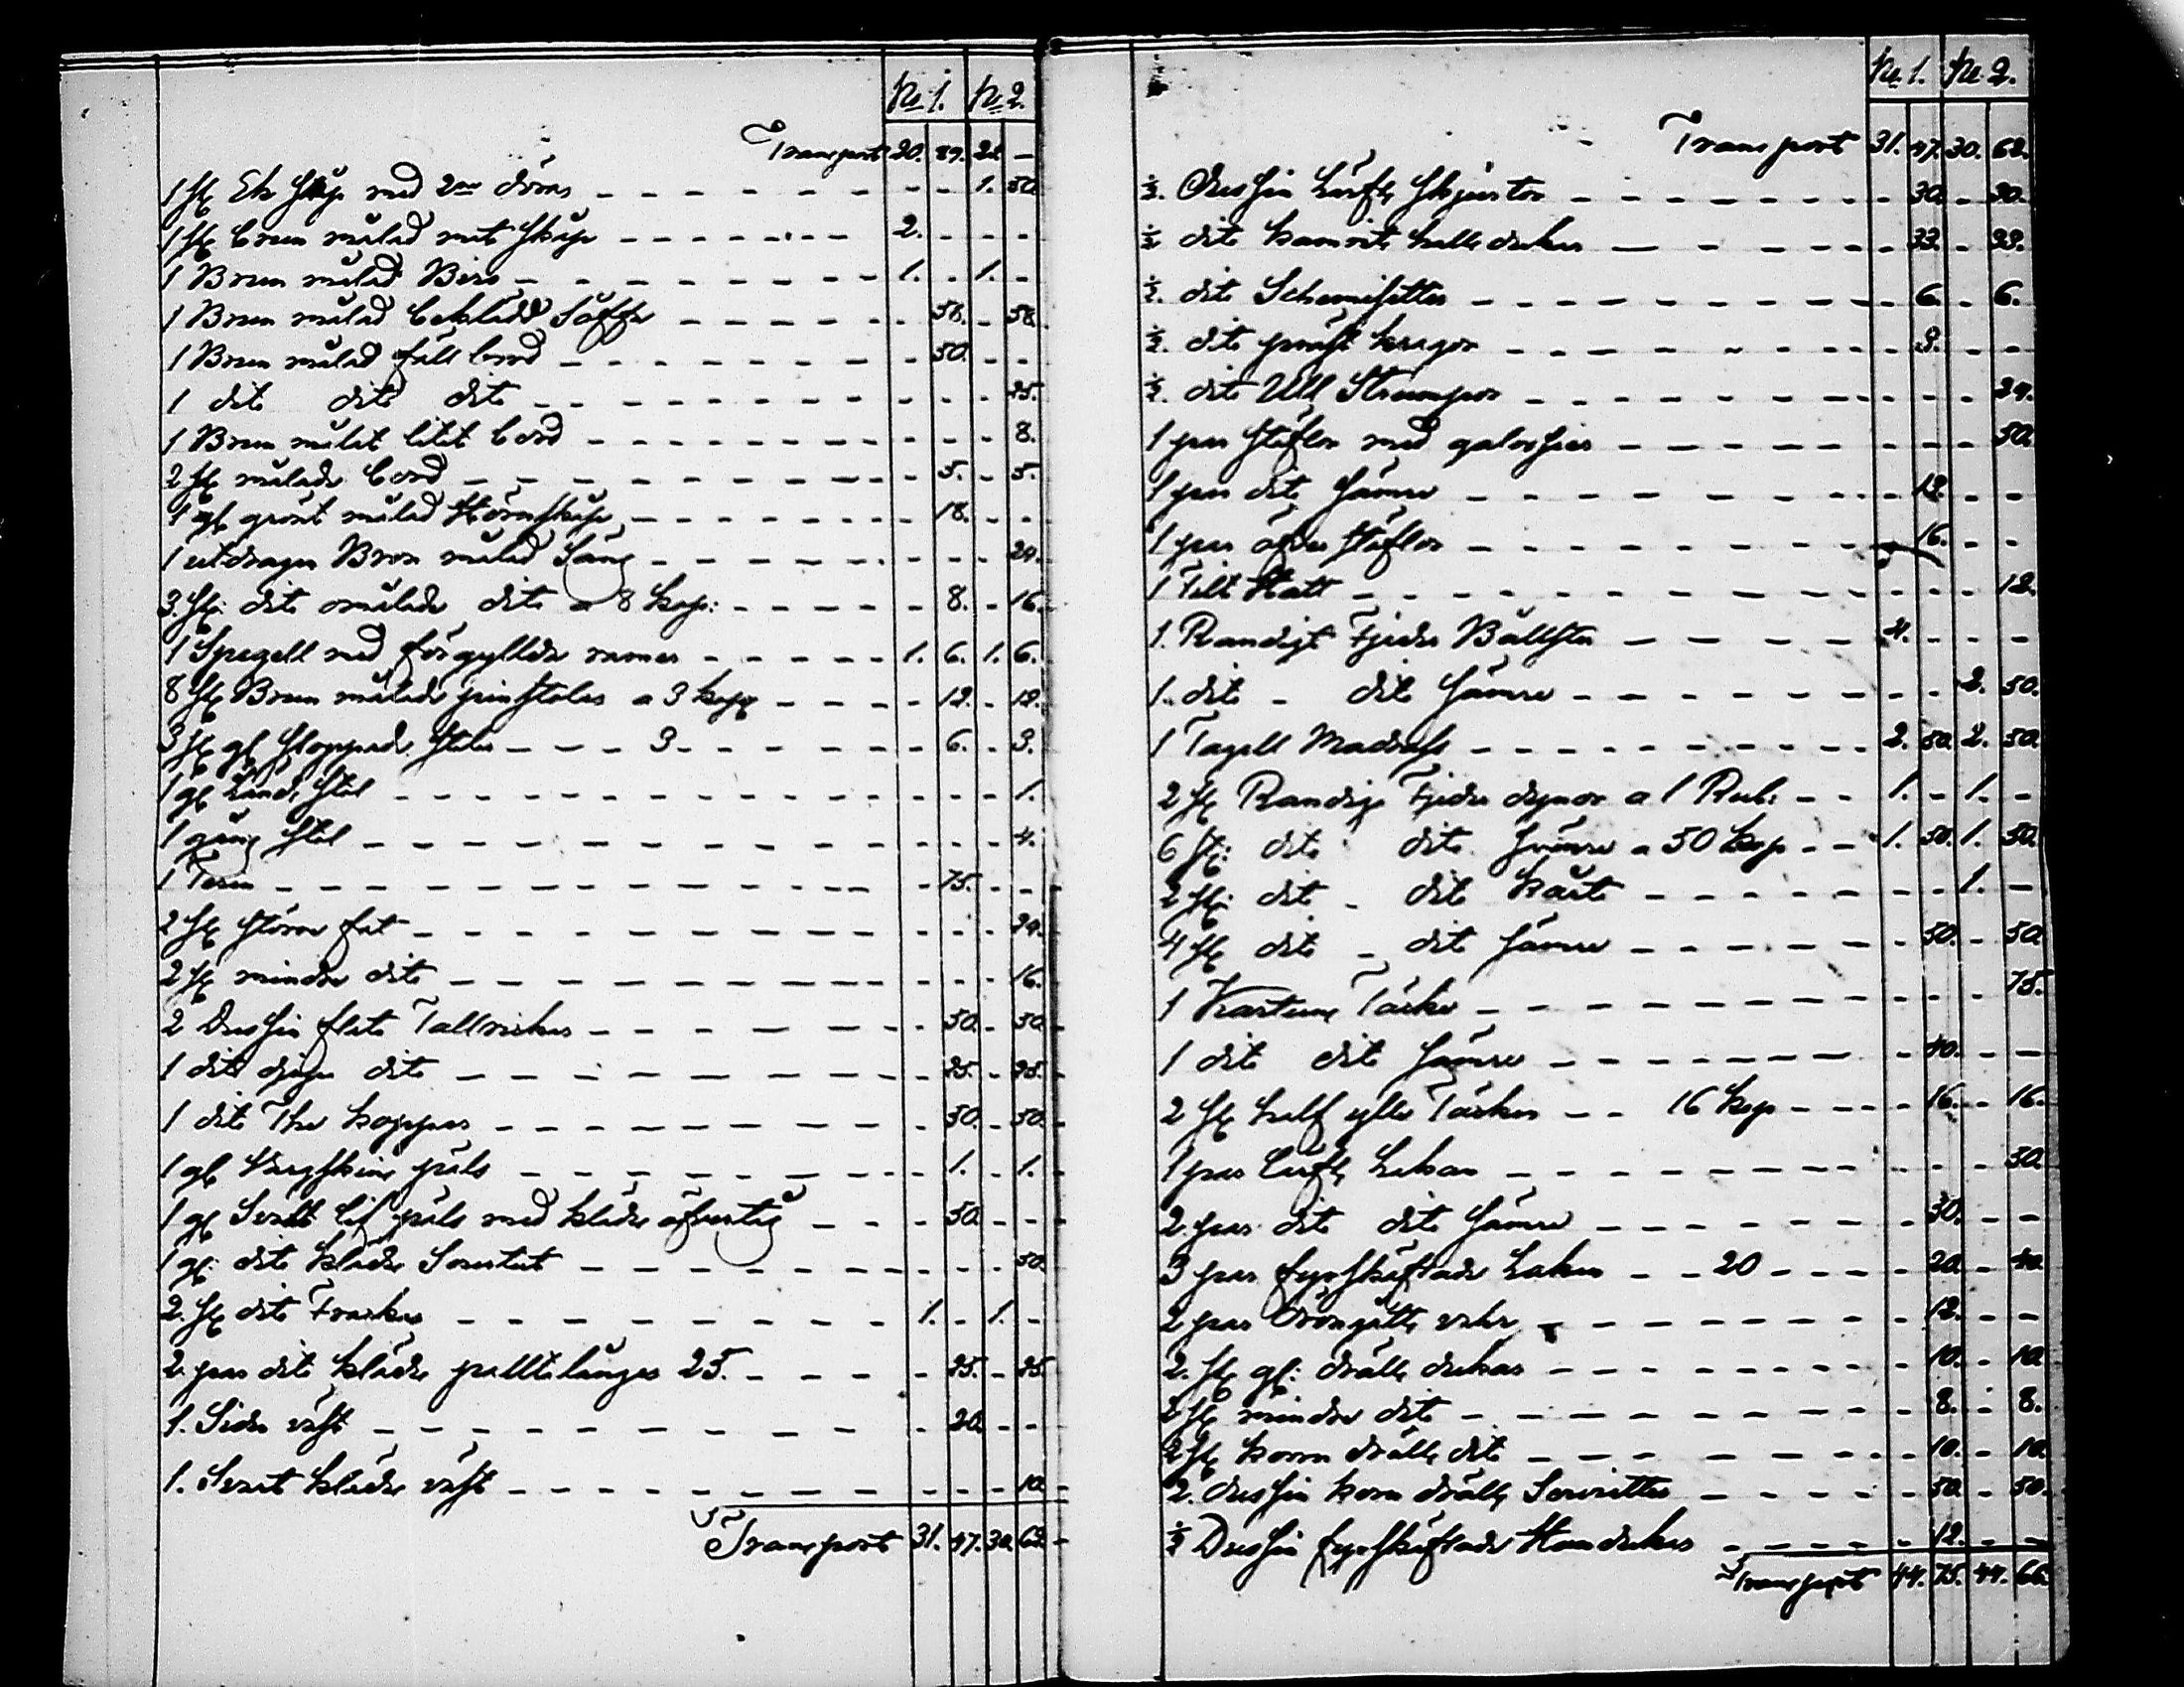 No 1. No 2.
Transport 20. 89. 21 –
1 st Ek skåp med 2ne dörar – – 1. 50.
1 st brun målad mat skåp – – 2. – – –
1 Brun målad Biro – – 1. – 1. –
1 Brun målad beklädd Soffa – – 58. – 58.
1 Brun målad fäll bord – – 50. – –
1 dito dito dito – – 25.
1 Brun målat litet bord – – 8.
2 st målade bord – – 5. – 5.
1 gl grönt målad Hörnskåp – – 18. – –
1 utdragen Brun målad Säng – – 24.
3. st: dito omålade dito a 8 kop: – – 8. – 16.
1 Spegell med förgyllda ramar – – 1. 6. 1. 6.
8 st Brun målade pinstolar a 3 kop – – 12. – 12.
3 st gl stoppade stolar – – 3 – – 6. – 3.
1 gl Länd stol – – 1.
1 gung stol – – 4.
1 Terin – – 75. – –
2 st större fat – – 24.
2 st mindre dito – – 16.
2 Dussin flata Tallrickar – – 50. – 50.
1 dito djupa dito – – 25. – 25.
1 dito The koppar – – 50. – 50.
1 gl Vargskins päls – – 1. – 1.
1 gl Svart lif päls med klädes öfvertig – – 50. – –
1 gl: dito klädes Sourtut – – 50.
2. st dito Frackar – – 1. – 1. –
2. par dito klädes palltlånger 25. – – 25. – 25.
1. Siden väst – – 20. – –
1. Svart klädes väst – – 10.
Transport 31. 47. 30. 62.
No 1. No 2.
Transport 31. 47. 30. 62.
½. Dussin Lärfts skjortor – – 30. – 30.
½ dito kamrits halls dukar – – 33. – 33.
½. dito Schemisetter – – 6. – 6.
½. dito präst kragor – – 3. – –
½. dito Ull Strumpor – – 24.
1 par stöflor med galossier – – 50.
1 par dito sämre – – 12. – –
1 par öfver stöflor – – 16. – –
1 Filt Hatt – – 12.
1. Randigt Fjeder Bållster – – 4. – – –
1. dito – dito sämre – – 2. 50.
1 Tagell Madrass – – 2. 50. 2. 50.
2 st Randige Fjeder dynor a 1 Rub: – – 1. – 1. –
6 st: dito dito sämre a 50 kop – – 1. 50. 1. 50.
2 st: dito – dito korte – – 1. –
4 st dito – dito sämre – – 50. – 50.
1 Kartuns Täcke – – 75.
1 dito dito sämre – – 40. – –
2 st half ylle Täcken – – 16 kop – – 16. – 16.
1 par Lärfts Lakan – – 30.
2. par dito dito sämre – – 30. – –
3 par fyrskäftade Lakan – – 20 – – 20. – 40.
2 par Örongåtts vahr – – 12. – –
2. st gl: dräll dukar – – 10. – 10.
2 st mindre dito – – 8. – 8.
2 st korn drälls dito – – 10. – 10.
2. dussin korn drälls Servietter – – 50. – 50.
½ Dussin fyrskäftade Handukar – – 12. – –
Transport 44. 75. 44. 66.